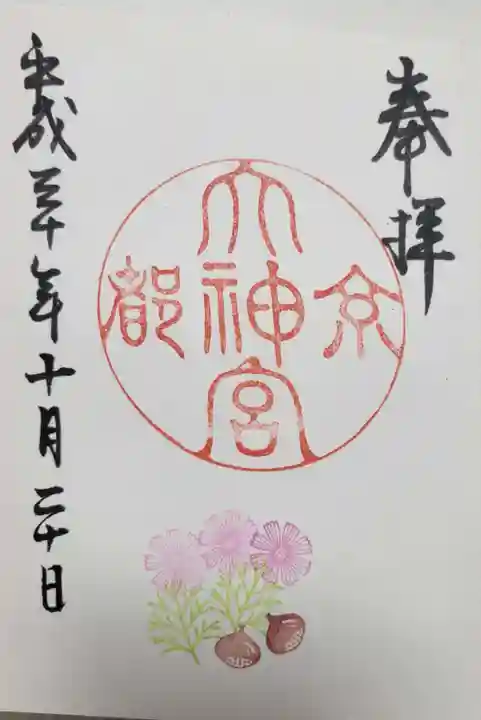 奉拝
京都
大神宮
平成三十年十月二十日